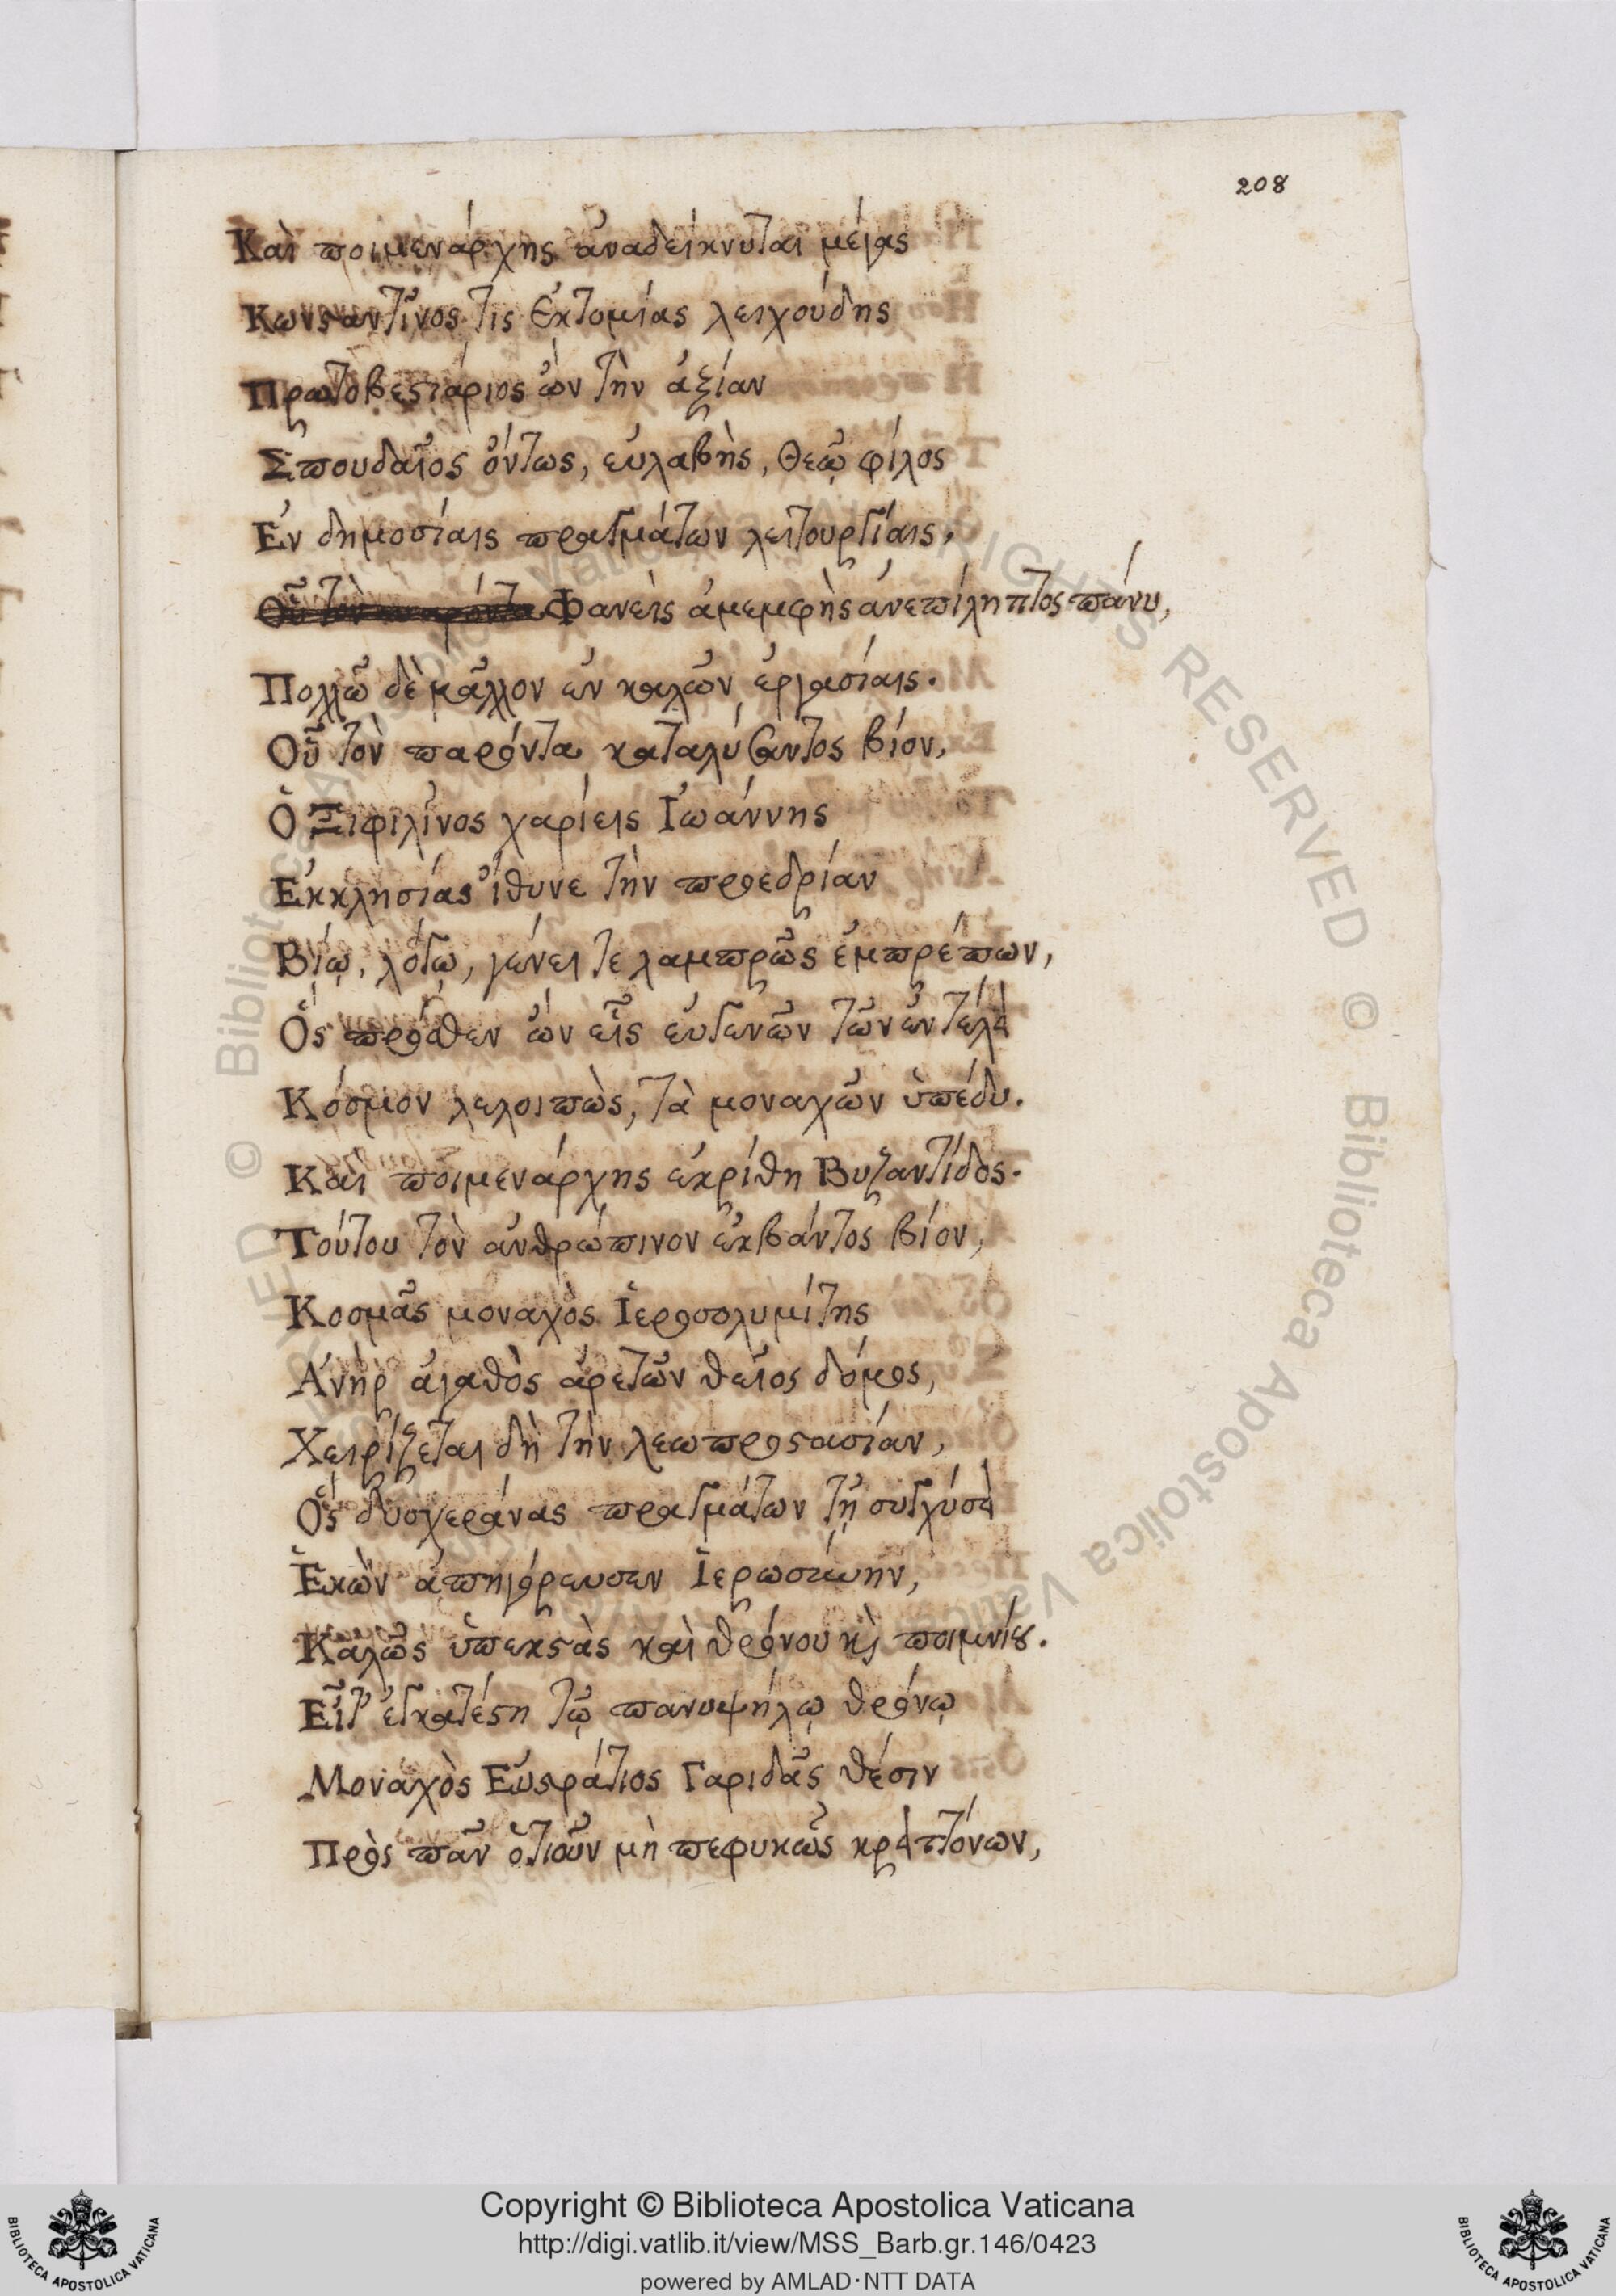 208
Καὶ ποιμενάρχης ἀναδείκνυται μέγας
Κωνσταντῖνος τὶς Ἐκτομίας λειχούδης
Πρωτοβεστιάριος ὢν τὴν ἀξίαν
Σπουδαῖος ὄντως, εὐλαβὴς, Θεῷ φίλος
Ἐν δημοσίαις πραγμάτων λειτουργίαις,
Οὗ τὸν παρόντα Φανεὶς ἀμεμφὴς ἀνεπίληπτος πάνυ,
Πολλῶ δὲ μᾶλλον ἐν καλῶν ἐργασίαις.
Οὗ τὸν παρόντα καταλύσαντος βίον,
Ὁ Ξιφιλῖνος χαρίεις Ἰωάννης
Ἐκκλησίας ἴθυνε τὴν προεδρίαν
Βίῳ, λόγῳ, γένει τε λαμπρῶς ἐμπρέπων,
Ὃς πρόσθεν ὢν εἷς εὐγενῶν τῶν ἐν τέλει
Κόσμον λελοιπὼς, τὰ μοναχῶν ὑπέδυ.
Καὶ ποιμενάρχης ἐκρίθη Βυζαντίδος.
Τούτου τὸν ἀνθρώπινον ἐκβάντος βίον,
Κοσμᾶς μοναχὸς Ἱεροσολυμίτης
Ἀνὴρ ἀγαθὸς ἀρετῶν θεῖος δόμος,
Χειρίζεται δὴ τὴν λεωπροστασίαν,
Ὃς δυσχεράνας πραγμάτων τῇ συγχύσει
Ἑκὼν ἀπηγόρευσεν Ἱερωσύνην,
Καλῶς ὑπεκστὰς καὶ θρόνου κὶ ποιμνίου.
Εἶτ' ἐγκατέστη τῷ πανυψήλῳ θρόνῳ
Μοναχὸς Εὐστράτιος Γαριδᾶς θέσιν
Πρὸς πᾶν ὁτιοῦν μὴ πεφυκὼς κρειττόνων,
Copyright © Biblioteca Apostolica Vaticana
http://digi.vatlib.it/view/MSS_Barb.gr.146/0423
powered by AMLAD·NTT DATA